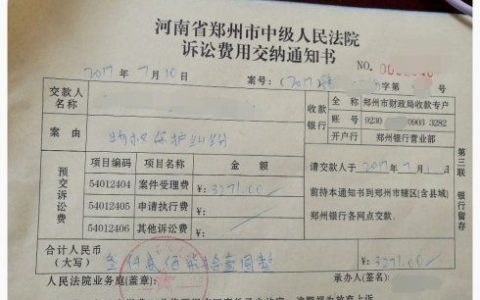 河南省郑州市中级人民法院
诉讼费用交纳通知书
NO.
2017年7月10日 案号：(2017) 字第 号
交款人名称
收款银行
全称 郑州市财政局收款专户
账号 9230 0903 3282
开户行 郑州银行营业部
案由 纠纷
预交诉讼费
项目编码 项目名称 金额
54012404 案件受理费 ¥:3271.00
54012405 申请执行费 ¥:
54012406 其他诉讼费 ¥:
请交款人于2017年7月 日
前持本通知书到郑州市辖区(含县城)
郑州银行各网点交款。
合计人民币(大写) 叁仟贰佰柒拾壹圆整 ¥:3271.00
人民法院业务庭(盖章): 承办人(签名):
第三联 银行留存